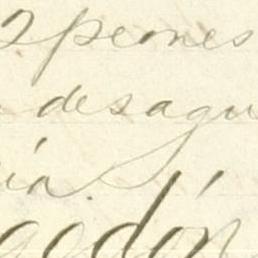 2 peones
desagu
ia.
godón